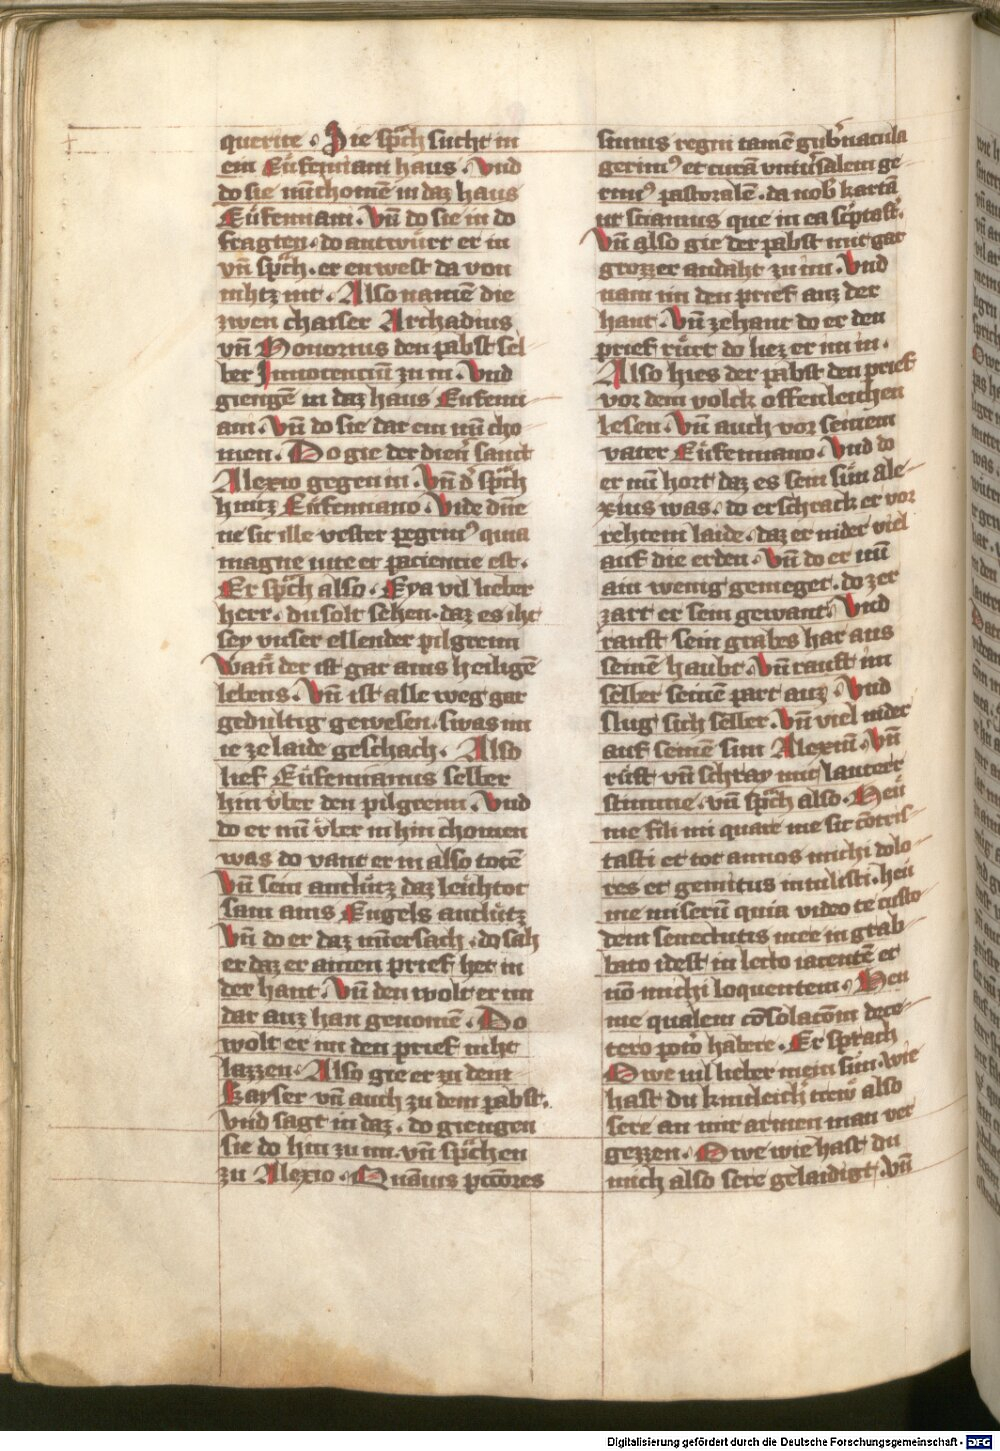 querite · Die sp̄ch sucht in
ein Eúfemiani haus · Vnd
do sie nu̅ chome̅ in daz haus
Eúfemiani · Vn̄ do sie in do
fragten · do antwúrt er in
vn̄ sp̄ch · er enwest da von
nihtz nit · Also name̅ die
zwen chaiser Archadius
vn̄ Honorius den pabst sel
ber Innocenciu̅ zu in · Vnd
gienge̅ in daz haus Eufemi-
ani · Vn̄ do sie dar ein nu̅ cho
men · Do gie der dien̄ sanct
Alexio gegen in · Vn̄ d' sp̄ch
hintz Eúfemiano · Vide d̄ne
ne sit ille vester pegrin⁹ quia
magne vite et paciencie est ·
Er sp̄ch also · Eya vil lieber
herr · du solt sehen · daz es iht
sey vnser ellender pilgreim
Wan̄ der ist gar ains heilige̅
lebens · Vn̄ ist alle weg gar
gedultig gewesen · swas im
ie ze laide geschach · Also
lief Eúfemianus selber
hin úber den pilgreim · Vnd
do er nu̅ úber in hin chomen
was do vant er in also tote̅
Vn̄ sein antlútz daz leúhtot
sam ains Engels antlútz
Vn̄ do er daz in̄ersach · do sah
er daz er ainen prief het in
der hant · Vn̄ den wolt er im
dar auz han genome̅ · Do
wolt er im den prief niht
lazzen · Also gie er zu dem
Kayser vn̄ auch zu dem pabst ·
vnd sagt in daz · do giengen
sie do hin zu im · vn̄ sp̄chen
zu Alexio · Qua̅uis p̄ccores
simus regni tame̅ gub'nacula
gerim⁹ et cura̅ vniu'salem ge
rim⁹ pastorale̅ · da nob' karta̅
ut sciamus que in ea sc̄pta s̄t ·
Vn̄ also gie der pabst mit gar
grozzer andaht zu im · Vnd
nam im den prief auz der
hant · Vn̄ zehant do er den
prief rúrt do liez er im in ·
Also hies der pabst den prief
vor dem volck offenleichen
lesen · Vn̄ auch vor seinem
vater Eúfemiano · Vnd do
er nu̅ hort daz es sein sún ale-
xius was · do erschrack er vor
rehtem laide · daz er nider viel
auf die erden · Vn̄ do er nu̅
ain wenig gemeget · do zer
zart er sein gewant · Vnd
rauft sein grabes har aus
seine̅ haubt · Vn̄ rauft im
selber seine̅ part auz · Vnd
slug sich selber · Vn̄ viel nider
auf seine̅ sun Alexiu̅ · Vn̄
rúft vn̄ schray mit lauterr
stimme · vn̄ sp̄ch also · Heú
me fili mi quare me sic co̅tris-
tasti et tot annos michi dolo-
res et gemitus intulisti · heú
me miseru̅ quia video te custo-
dem senectutis mee in grab-
bato idest in lecto iacente̅ et
no̅ michi loquentem · Heu
me qualem co̅solaco̅m dece-
tero pot'o habere · Er sprach
O we vil lieber mein sún · wie
hast du kintleich trew also
sere an mir armen man ver
gezzen · O we wie hast du
mich also sere gelaidigt · Vn̄
Digitalisierung gefördert durch die Deutsche Forschungsgemeinschaft - DFG